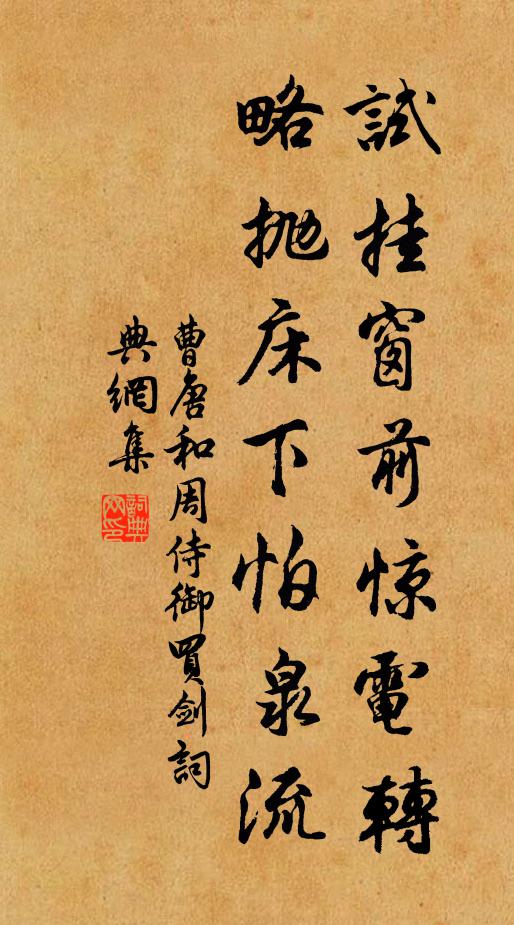 試挂窗前惊電轉
略抛床下怕泉流
曹唐和周侍御買剑詞
典網集
詞典网印